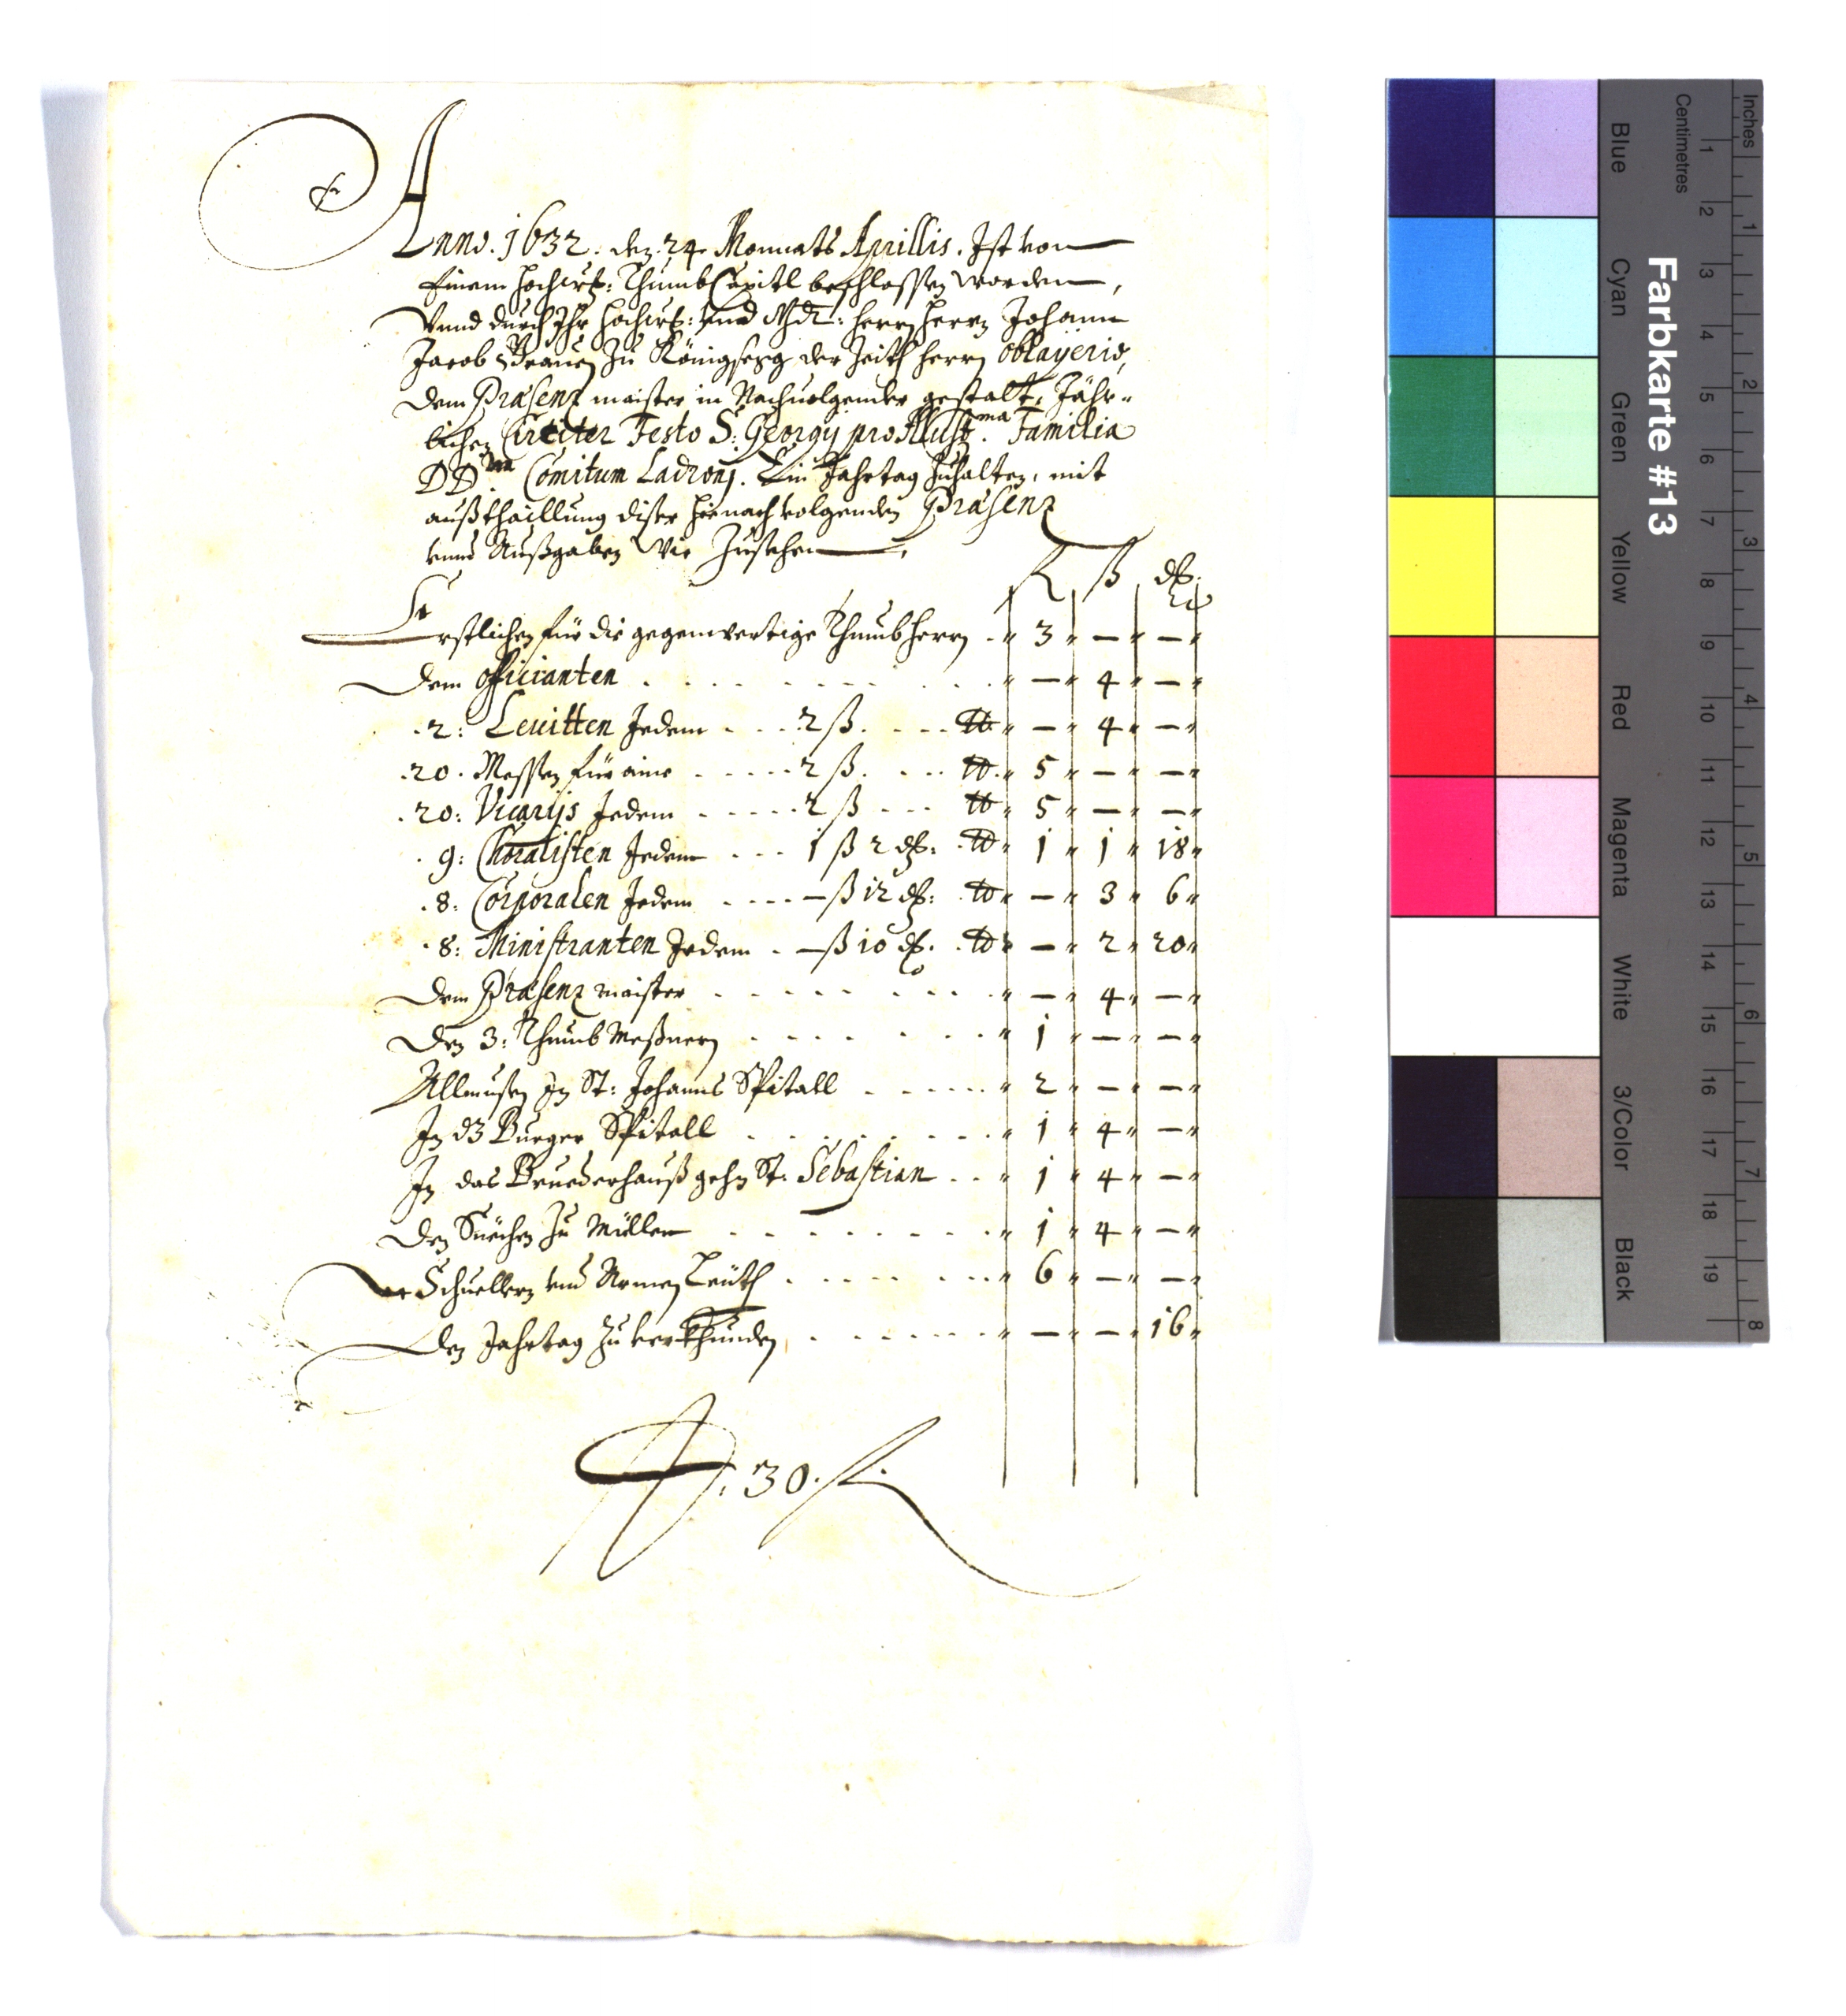 Anno. 1632. den 24 Monnats Aprillis. Ist von
Einem hochwr: Thumb Capitl beschlossen worden,
Vnnd durch Ihr hochwr: vnnd Herrn Herrn Johann
Jacob Grauen zu Königsegg der Zeith herrn Oblayerio,
dem Præsenz maister in Nachuolgender gestalt, Jähr-
lichen Circiter Festo S: Georgij pro Illust:ma Familia
DD: Comitum Ladronj. Ein Jahrtag zuhalten, mit
außthaillung diser hernach volgenden Præsenz
vnnd Außgaben wie Zusehen,
fl ß dl.
Erstlichen für die gegenwertige Thumbherrn . 3 — —
Dem Officianten . . . . — 4 —
.2: Leuitten Jedem . . . 2 ß. . . . — 4 —
.20. Messen für aine . . . . . 2 ß. . . . 5 — —
.20: Vicarijs Jedem . . . . . 2 ß . . . 5 — —
.9: Choralisten Jedem . . . 1 ß 2 dl: 1 1 18
.8: Corporalen Jedem . . . . — ß 12 dl: — 3 6
.8: Ministranten Jedem . — ß 10 dl. — 2 20
Dem Præsenz maister . . . . — 4 —
Den 3: Thumb Meßnern . . . . 1 — —
Allmusen In St: Johanns Spitall . . . . . 2 — —
In dz Burger Spitall . . . . 1 4 —
In das Bruederhauß gehn St: Sebastian . . 1 4 —
Den Siechen zu Müllen . . . . 1 4 —
Schuellern vnd Armen Leüth . . . . 6 — —
Den Jahrtag zu verkhünden . . . . — — 16
: 30. fl.
Farbkarte #13
Inches
Centimetres
1 2 3 4 5 6 7 8
1 2 3 4 5 6 7 8 9 10 11 12 13 14 15 16 17 18 19
Blue
Cyan
Green
Yellow
Red
Magenta
White
3/Color
Black